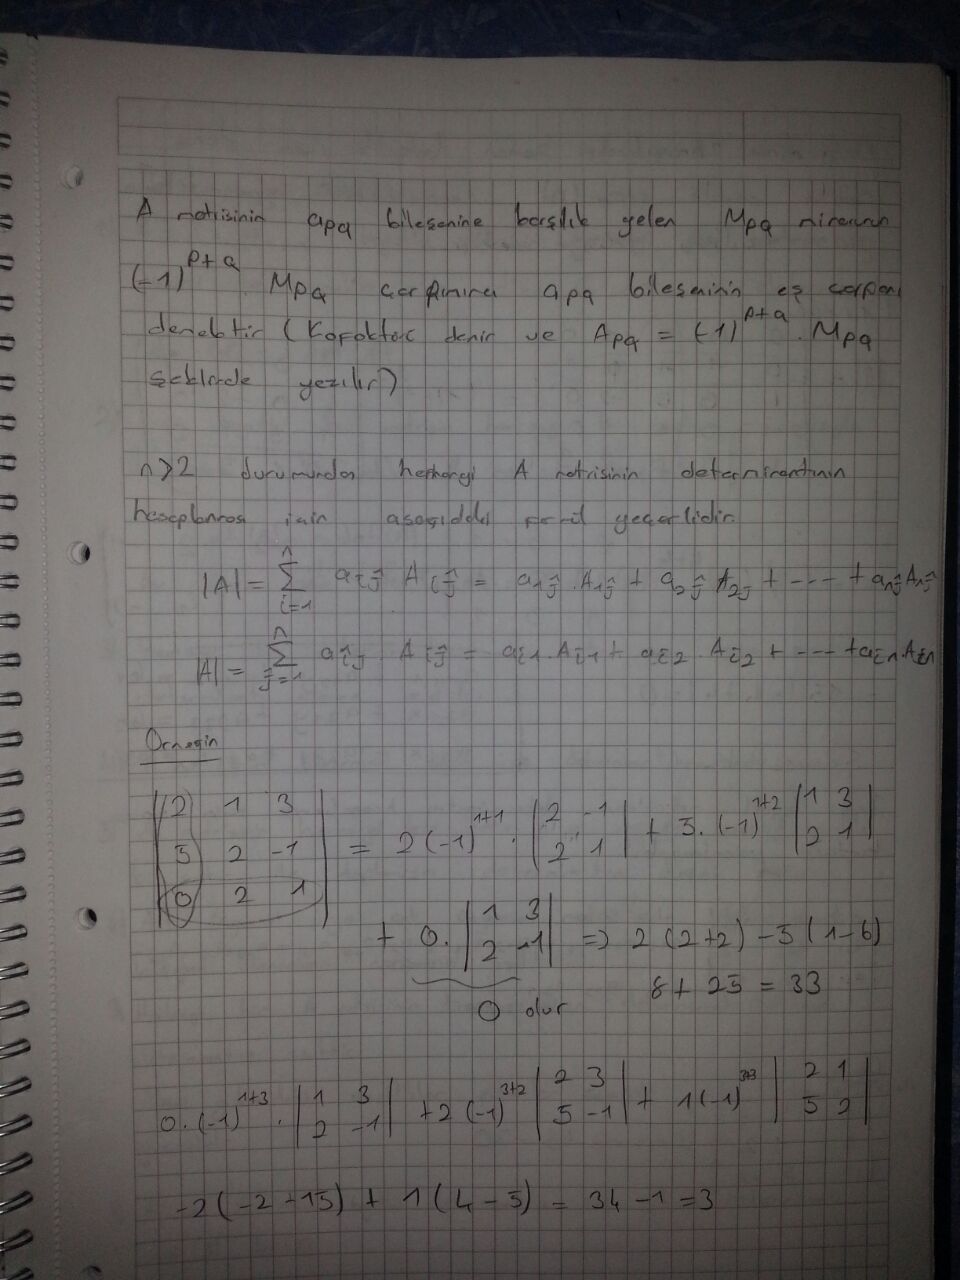 A matrisinin apq bileşenine karşılık gelen Mpq minorunun
(-1)^p+q Mpq çarpımına apq bileşeninin eş çarpanı
denektir (Kofaktör denir ve Apq = (-1)^p+q . Mpq
şeklinde yazılır)
n≥2 durumunda herhangi A matrisinin determinantının
hesaplanması için aşağıdaki formül geçerlidir.
|A| = n Σ i=1 aij Aij = a1j . A1j + a2j A2j + ---- + anj Anj
|A| = n Σ j=1 aij . Aij = ai1 . Ai1 + ai2 . Ai2 + ---- + ain . Ain
Örneğin
|2 1 3| = 2(-1)^1+1 . |2 -1| + 5.(-1)^1+2 |1 3|
|5 2 -1| |2 1| |2 1|
|0 2 1|
+ 0. |1 3| => 2(2+2) -5(1-6)
|2 -1|
0 olur 8 + 25 = 33
0.(-1)^1+3 . |1 3| +2(-1)^3+2 |2 3| + 1(-1)^3+3 |2 1|
|2 -1| |5 -1| |5 2|
-2(-2-15) + 1(4-5) = 34 -1 = 3